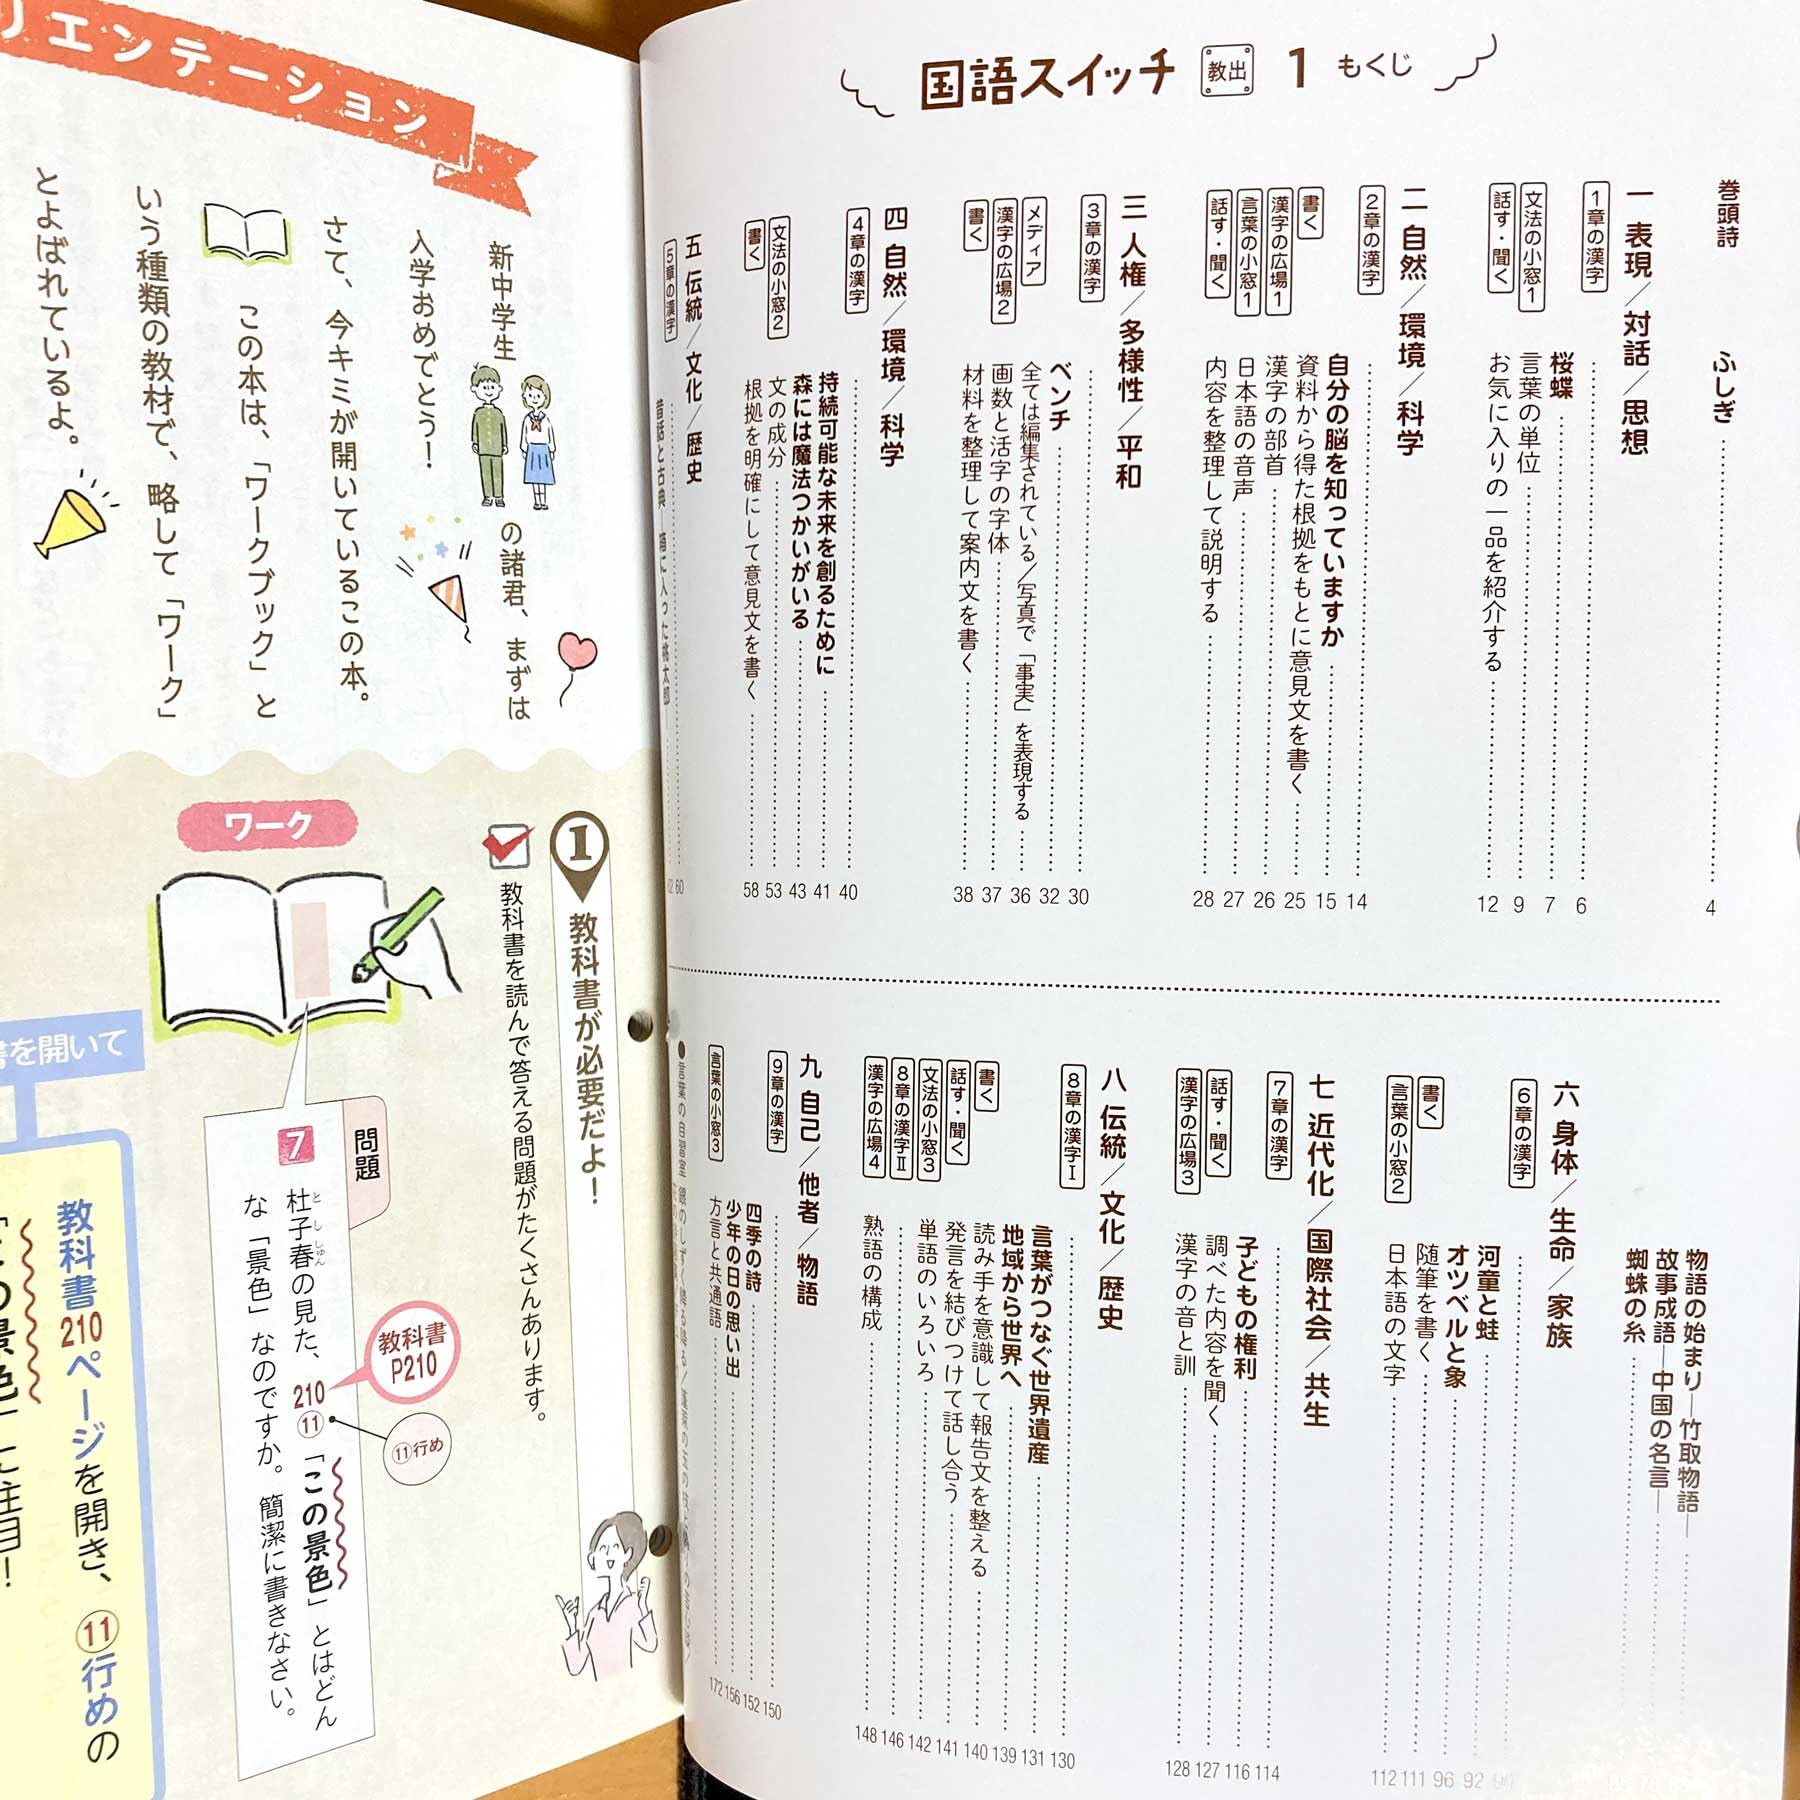 国語スイッチ 教出 1 もくじ
巻頭詩 ふしぎ 4
一 表現／対話／思想
1章の漢字 6
桜蝶 7
文法の小窓1 言葉の単位 9
話す・聞く お気に入りの一品を紹介する 12
二 自然／環境／科学
2章の漢字 14
自分の脳を知っていますか 15
書く 資料から得た根拠をもとに意見文を書く 25
漢字の広場1 漢字の部首 26
言葉の小窓1 日本語の音声 27
話す・聞く 内容を整理して説明する 28
三 人権／多様性／平和
3章の漢字 30
ベンチ 32
メディア 全ては編集されている／写真で「事実」を表現する 36
漢字の広場2 画数と活字の字体 37
書く 材料を整理して案内文を書く 38
四 自然／環境／科学
4章の漢字 40
持続可能な未来を創るために 41
森には魔法つかいがいる 43
文法の小窓2 文の成分 53
書く 根拠を明確にして意見文を書く 58
五 伝統／文化／歴史
5章の漢字 60
昔話と古典―箱に入った桃太郎― 62
物語の始まり―竹取物語―
故事成語―中国の名言―
蜘蛛の糸
六 身体／生命／家族
6章の漢字
河童と蛙 92
オツベルと象 96
書く 随筆を書く 111
言葉の小窓2 日本語の文字 112
七 近代化／国際社会／共生
7章の漢字 114
子どもの権利 116
話す・聞く 調べた内容を聞く 127
漢字の広場3 漢字の音と訓 128
八 伝統／文化／歴史
8章の漢字Ⅰ 130
言葉がつなぐ世界遺産 131
地域から世界へ 139
書く 読み手を意識して報告文を整える 140
話す・聞く 発言を結びつけて話し合う 141
文法の小窓3 単語のいろいろ 142
8章の漢字Ⅱ 146
漢字の広場4 熟語の構成 148
九 自己／他者／物語
9章の漢字 150
四季の詩 152
少年の日の思い出 156
言葉の小窓3 方言と共通語 172
●言葉の自習室
リエンテーション
新中学生の諸君、まずは
入学おめでとう！
さて、今キミが開いているこの本。
この本は、「ワークブック」と
いう種類の教材で、略して「ワーク」
とよばれているよ。
1 教科書が必要だよ！
教科書を読んで答える問題がたくさんあります。
ワーク
問題
7 杜子春の見た、210⑪「この景色」とはどん
と ししゅん
な「景色」なのですか。簡潔に書きなさい。
教科書
P210
⑪行め
を開いて
教科書210ページを開き、⑪行めの